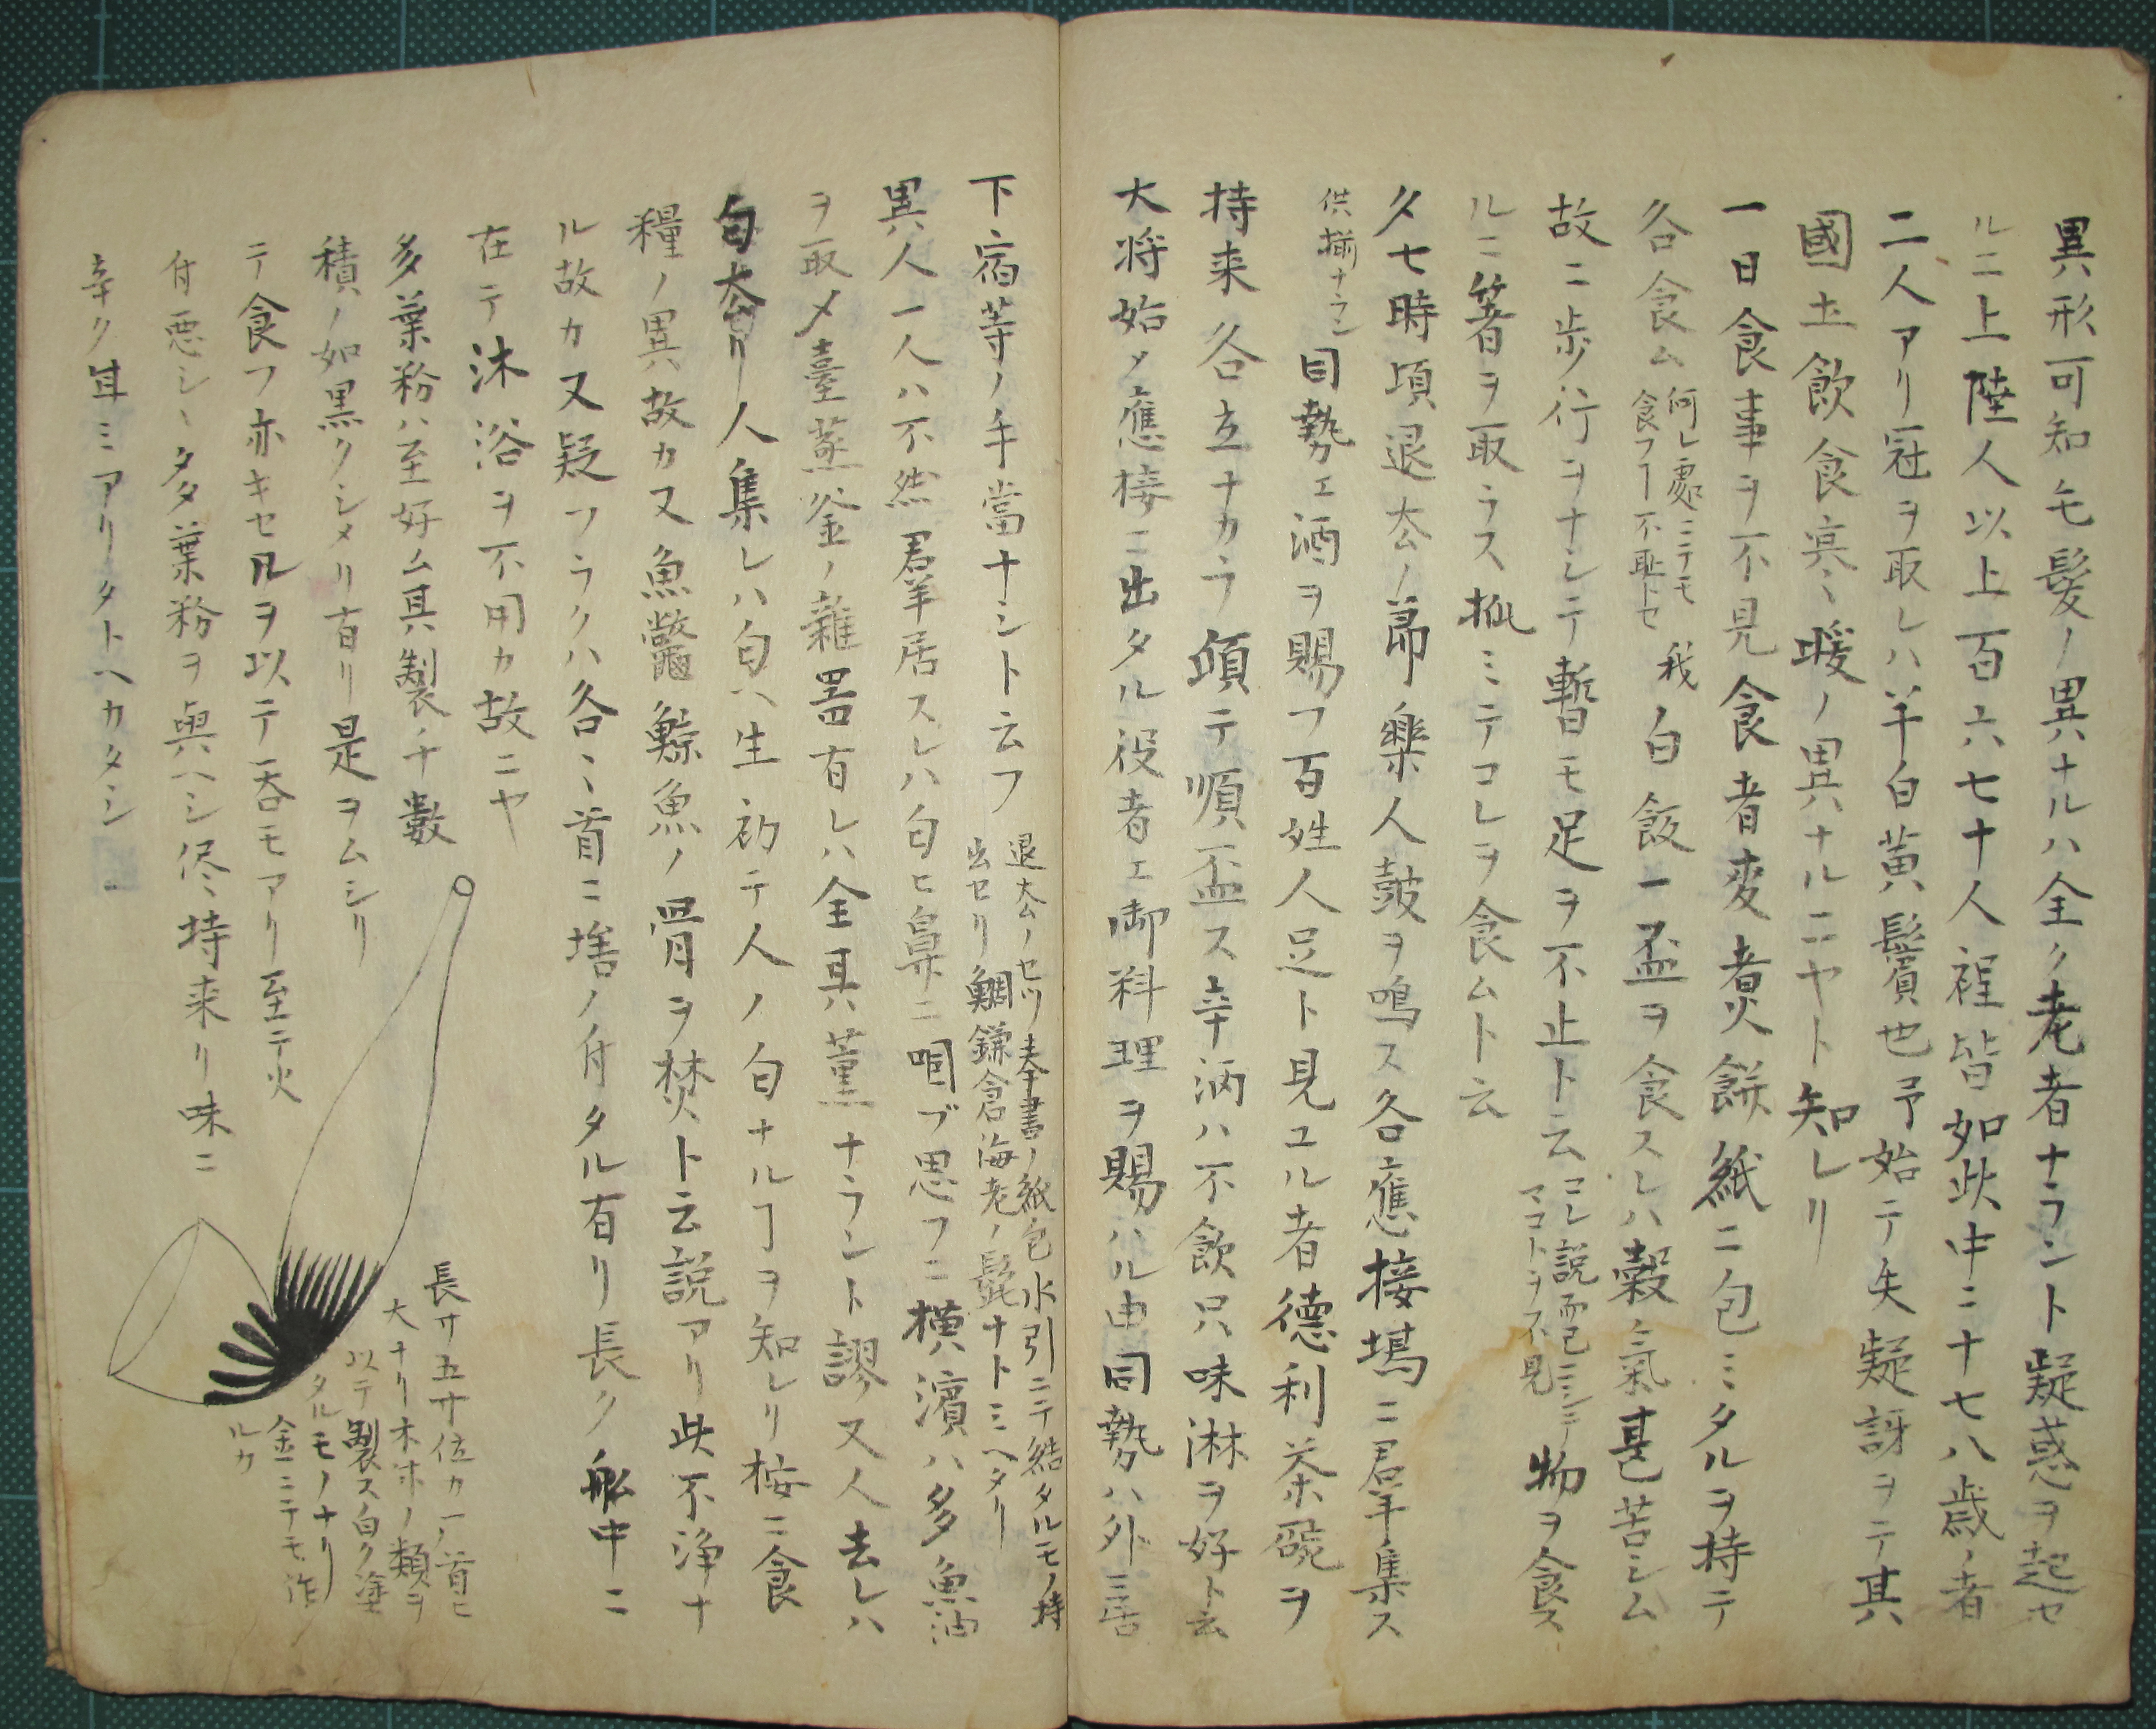 異形可知モ髪ノ異ナルハ全ク老者ナラント疑惑ヲ起セ
ルニ上陸人以上百六七十人裎皆如此中ニ十七八歳ノ者
二人アリ冠ヲ取レハ半白黄鬢也予始テ失疑訝ヲテ其
國土飲食寒〻暖ノ異ナルニヤト知レリ
一日食事ヲ不見食者麦煮餅紙ニ包ミタルヲ持テ
各食ム
何レ處ニテモ
食フヿ不恥トセ
我白飯一盃ヲ食スレハ穀ノ氣甚苦シム
故ニ歩行ヲナシテ暫モ足ヲ不止ト云
コレ説而已ニシテ
マコトヲ不見
物ヲ食ス
ルニ箸ヲ取ラス抓ミテコレヲ食ムト云
夕七時頃退去ノ節樂人鼓ヲ鳴ス各應接場ニ群集ス
供揃ナラン
同勢エ酒ヲ賜フ百姓人足ト見ユル者德利茶碗ヲ
持来各立ナカラ頭テ順盃ス辛酒ハ不飲只味淋ヲ好ト云
大将始メ應接ニ出タル役者エ御料理ヲ賜ハル由同勢ハ外ニ居
下宿等ノ手當ナシト云フ
退去ノセツ奉書ノ紙包水引ニテ結タルモノ持
出セリ鯛鎌倉海老ノ髭ナトミヘタリ
異人一人ハ不然群居スレハ匂ヒ鼻ニ咽ブ思フニ横濱ハ多魚油
ヲ取メ臺蒸釜ノ雜噐有レハ全其薫ナラント謬又人去レハ
匂太リ人集レハ匂ハ生初テ人ノ匂ナルヿヲ知レリ桉ニ食
糧ノ異故カ又魚鼈鯨魚ノ骨ヲ焚ト云説アリ此不浄ナ
ル故カ又疑フラクハ各〻首ニ塔ノ付タル有リ長ク船中ニ
在テ沐浴ヲ不用カ故ニヤ
多葉粉ハ至好ム其製チ數
積ノ如黒クシメリ有リ是ヲムシリ
テ食フ亦キセルヲ以テ呑モアリ至テ火
付悪シ〻タ葉粉ヲ與ヘシ侭〻持来リ味ニ
辛ク甘ミアリタトヘカタシ
長サ五寸位カン首ヒ
大ナリ木ホノ類ヲ
以テ製ス白ク塗
タルモノナリ
金ニテモ造
ルカ